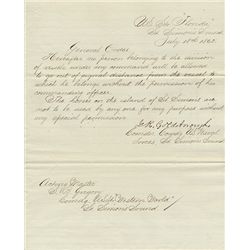 U.S.S. "Florida"
St. Simon's Sound
July 10th 1862.
General Order.
Hereafter no person belonging to the division
of vessels under my command will be allowed
to go out of signal distance from the vessel to
which he belongs without the permission of his
commanding officer.
The horses on the island of St. Simon's are
not to be used by any one for any purpose without my
special permission
J. R. Goldsborough
Comdr. Comdg U.S. Naval
forces St. Simon's Sound.
Acting Master
S. W. Gregory
Comdg U.S.S. "Western World"
St. Simon's Sound